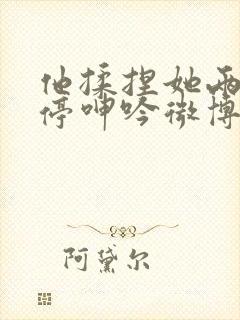 他揉捏她两
停呻吟微博
阿黛尔